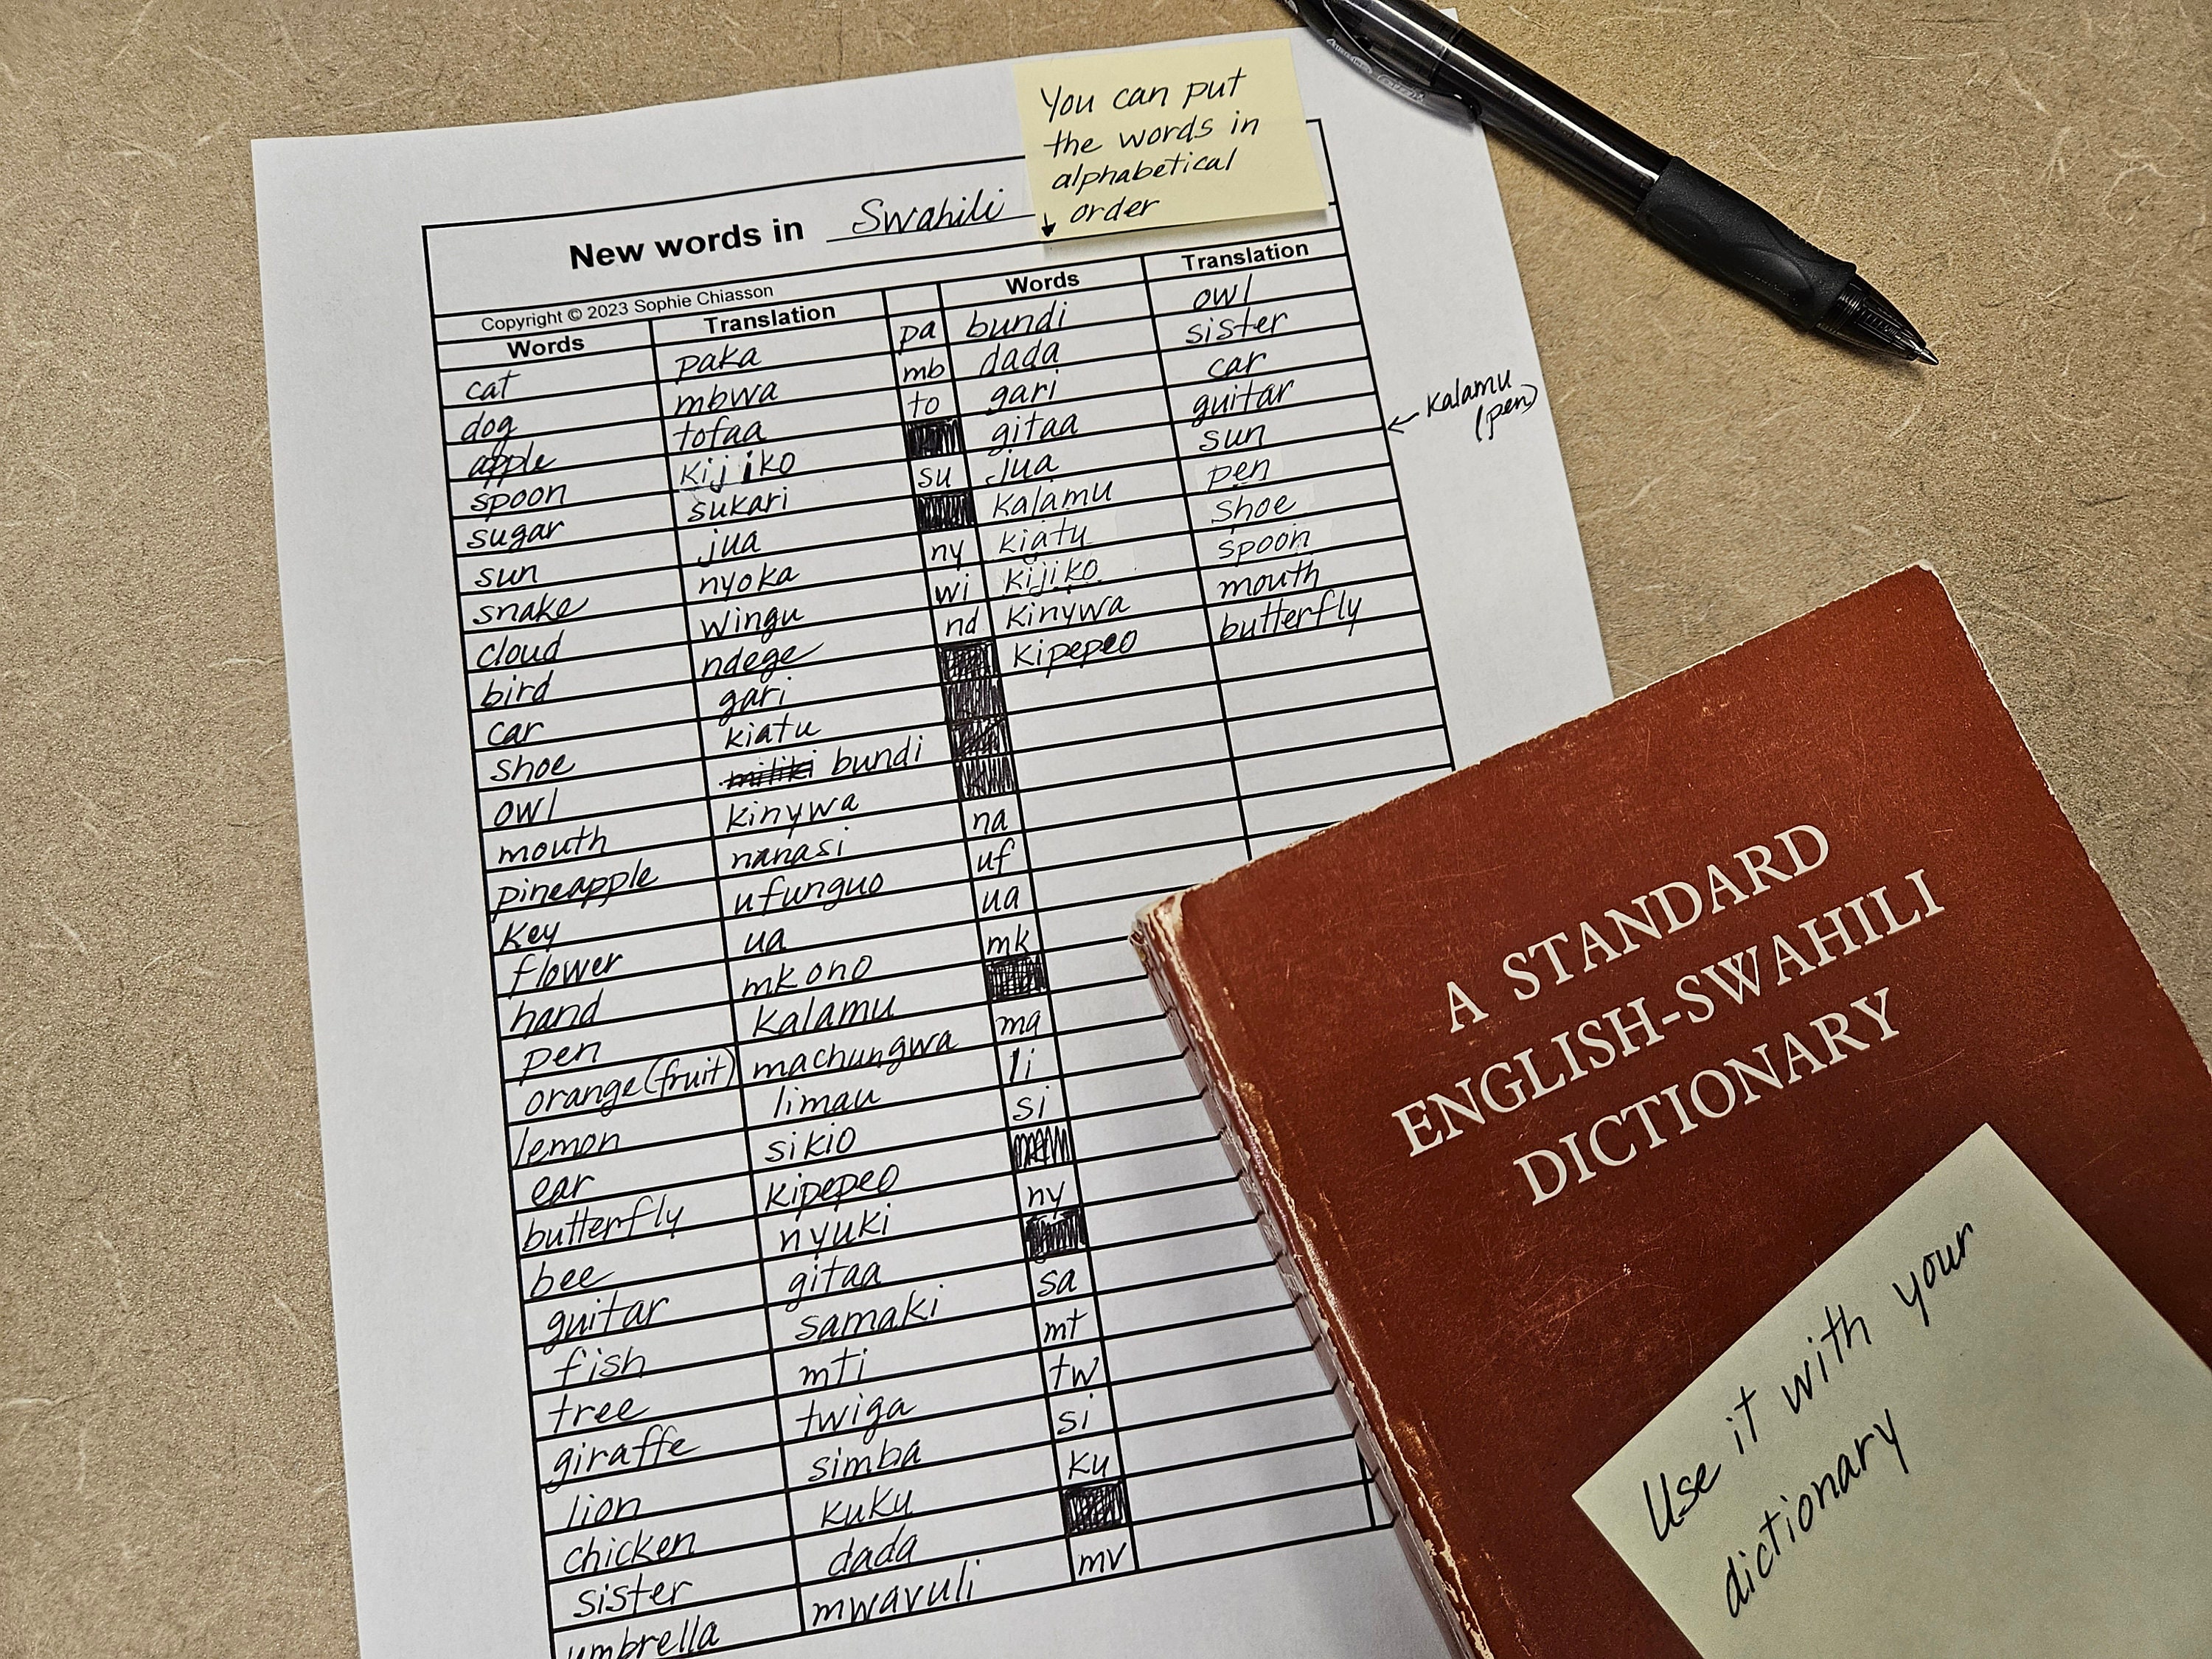 You can put
the words in
alphabetical
order
New words in Swahili
Copyright © 2023 Sophie Chiasson
Words Translation Words Translation
cat paka pa bundi owl
dog mbwa mb dada sister
apple tofaa to gari car
spoon kijiko gitaa guitar
sugar sukari su jua sun
kalamu
(pen)
sun jua kalamu pen
snake nyoka ny kiatu shoe
cloud wingu wi kijiko spoon
bird ndege nd kinywa mouth
car gari kipepeo butterfly
shoe kiatu
owl miliki bundi
mouth kinywa
pineapple nanasi na
key ufunguo uf
flower ua ua
hand mkono mk
pen kalamu
orange(fruit) machungwa ma
lemon limau li
ear sikio si
butterfly kipepeo
bee nyuki ny
guitar gitaa
fish samaki sa
tree mti mt
giraffe twiga tw
lion simba si
chicken kuku ku
sister dada
umbrella mwavuli mv
A STANDARD
ENGLISH-SWAHILI
DICTIONARY
Use it with your
dictionary